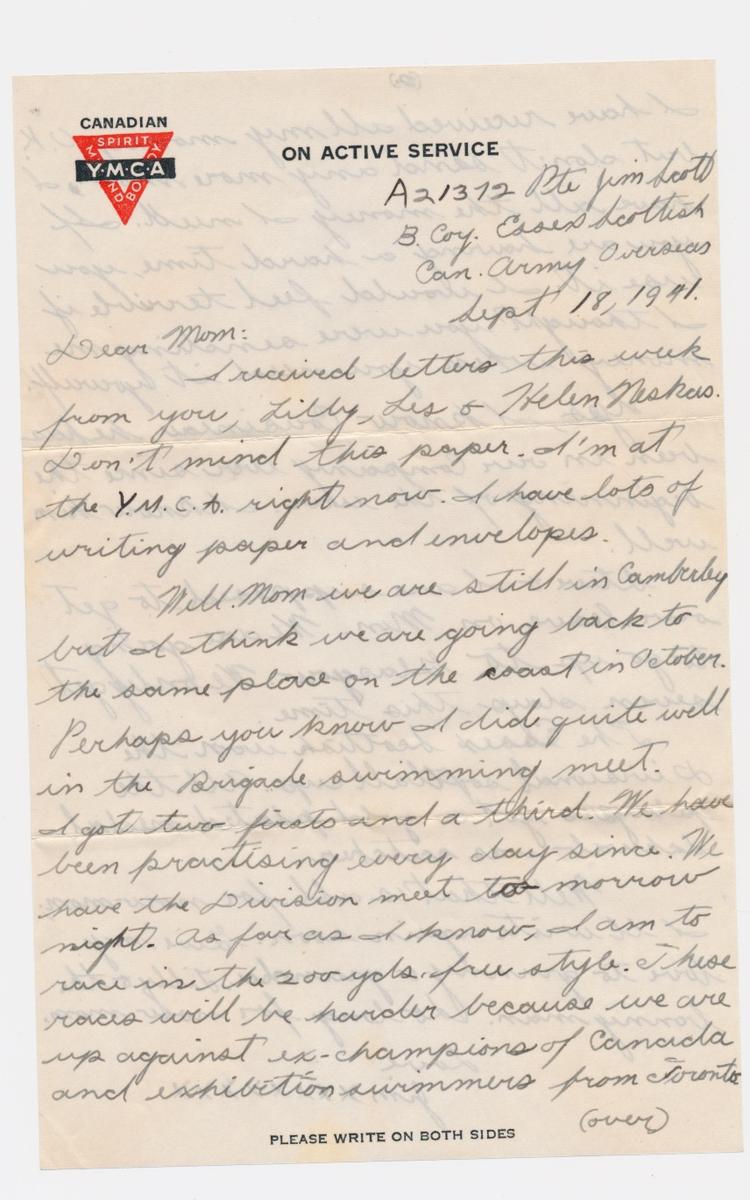 CANADIAN
SPIRIT
MIND Y·M·C·A BODY
ON ACTIVE SERVICE
A21372 Pte Jim Scott
B. Coy. Essex Scottish
Can. Army Overseas
Sept 18, 1941.
Dear Mom:
I received letters this week
from you, Lilly, Les & Helen Neskas.
Don't mind this paper. I'm at
the Y.M.C.A. right now. I have lots of
writing paper and envelopes.
Well Mom we are still in Camberley
but I think we are going back to
the same place on the coast in October.
Perhaps you know I did quite well
in the Brigade swimming meet.
I got two firsts and a third. We have
been practising every day since. We
have the Division meet to morrow
night. As far as I know, I am to
race in the 200 yds. free style. These
races will be harder because we are
up against ex-champions of Canada
and exhibition swimmers from Toronto
(over)
PLEASE WRITE ON BOTH SIDES